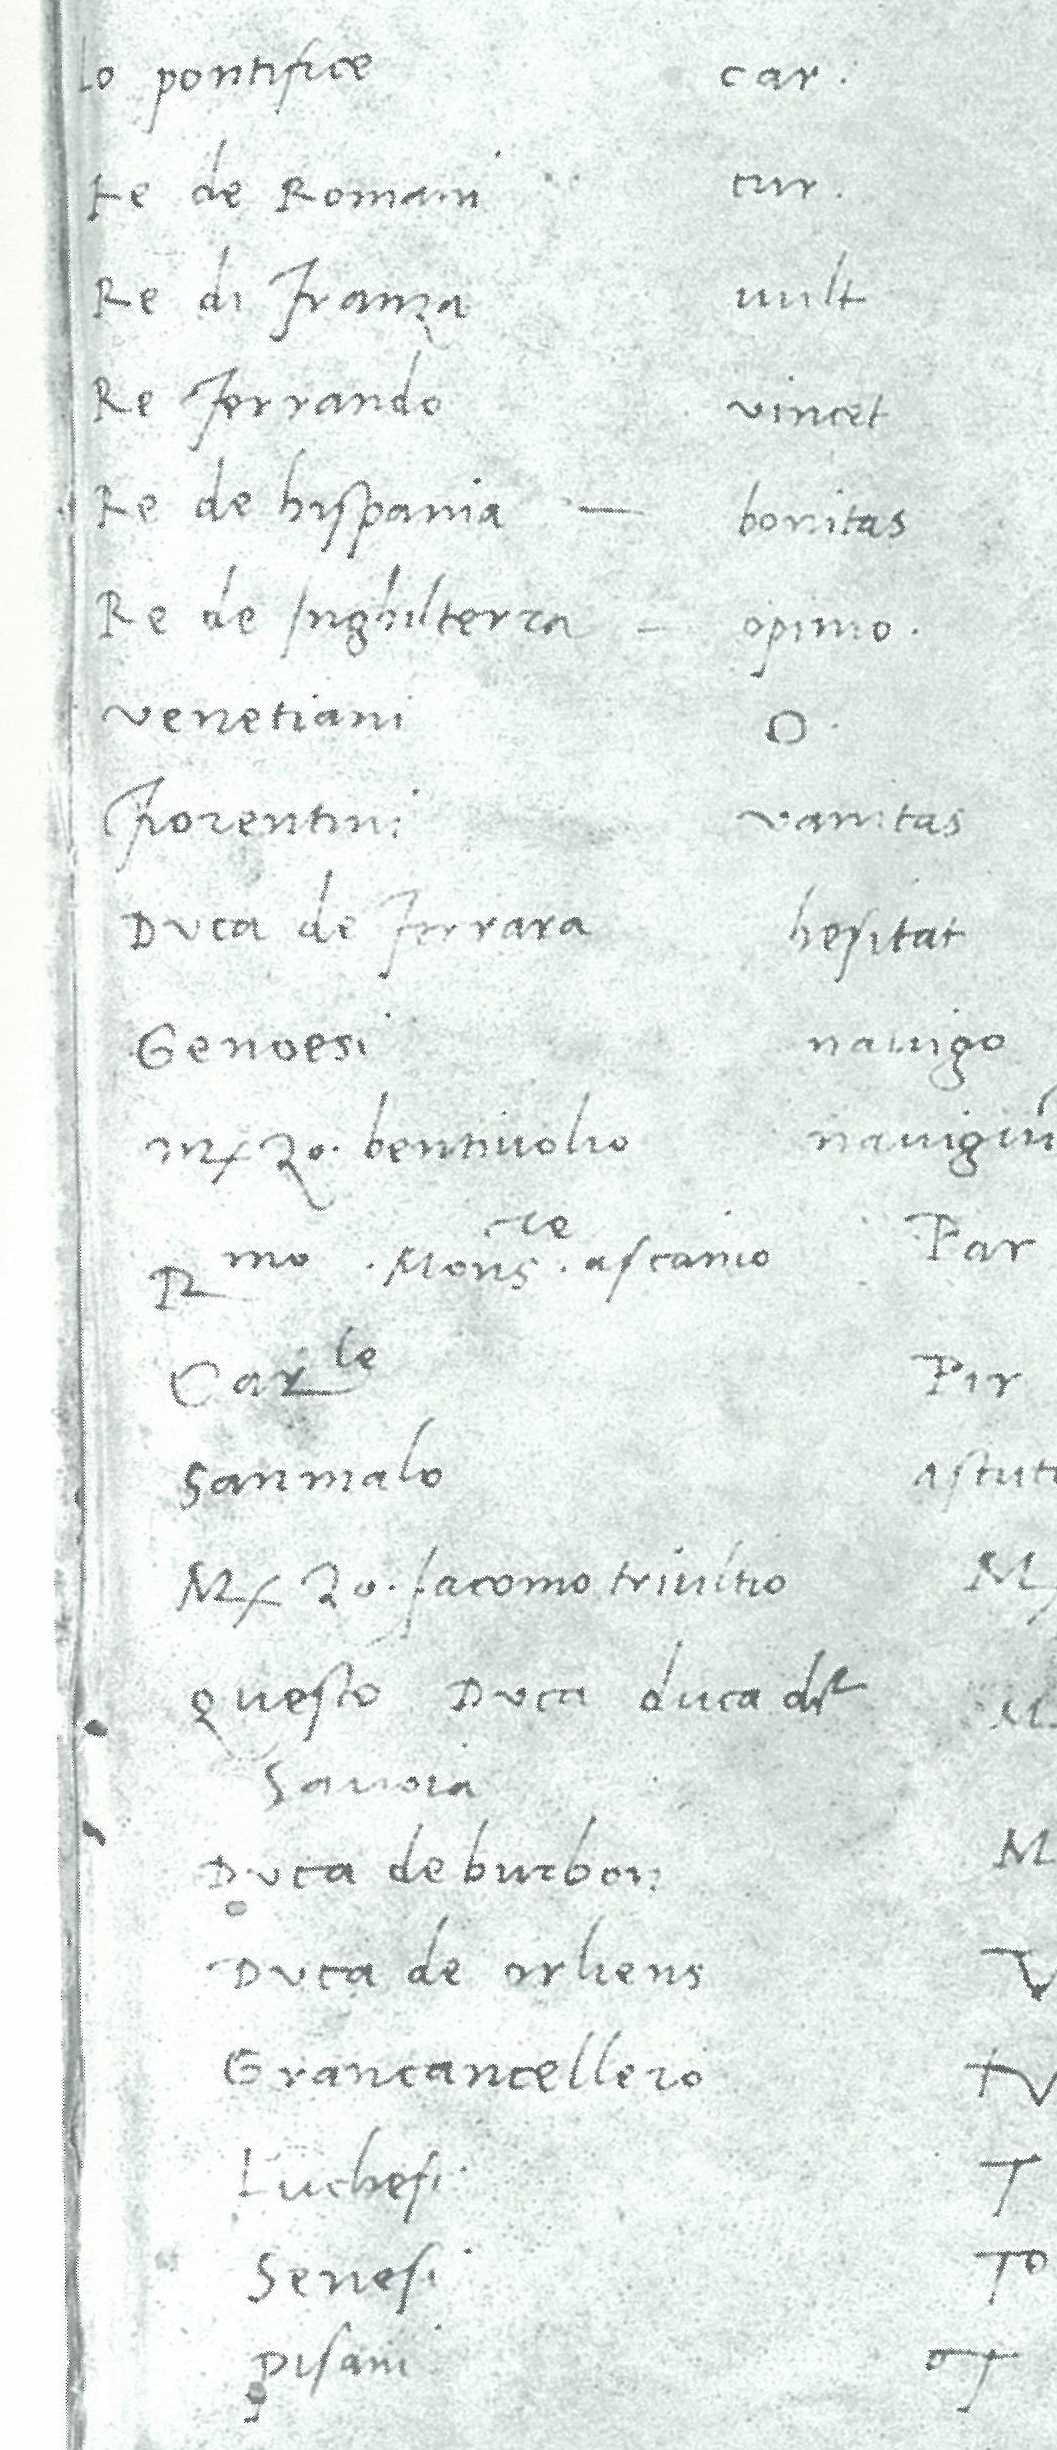 lo pontifice car.
Re de Romani cur.
Re di Franza uult
Re Ferrando vincet
Re de hispania — bonitas
Re de Inghilterra — opimo.
venetiani O.
fiorentini vanitas
Duca de Ferrara hesitat
Genoesi nauigo
Mx Zo. bentiuolio nauigiu
Rmo. Monsre. ascanio Par
Carle Pir
Sanmalo astut
Mx Zo. Jacomo triultio M
questo Duca duca de M
Sauoia
Duca de burbon M
Duca de orliens
Grancancellero
Luchesi T
Senesi To
Pisani